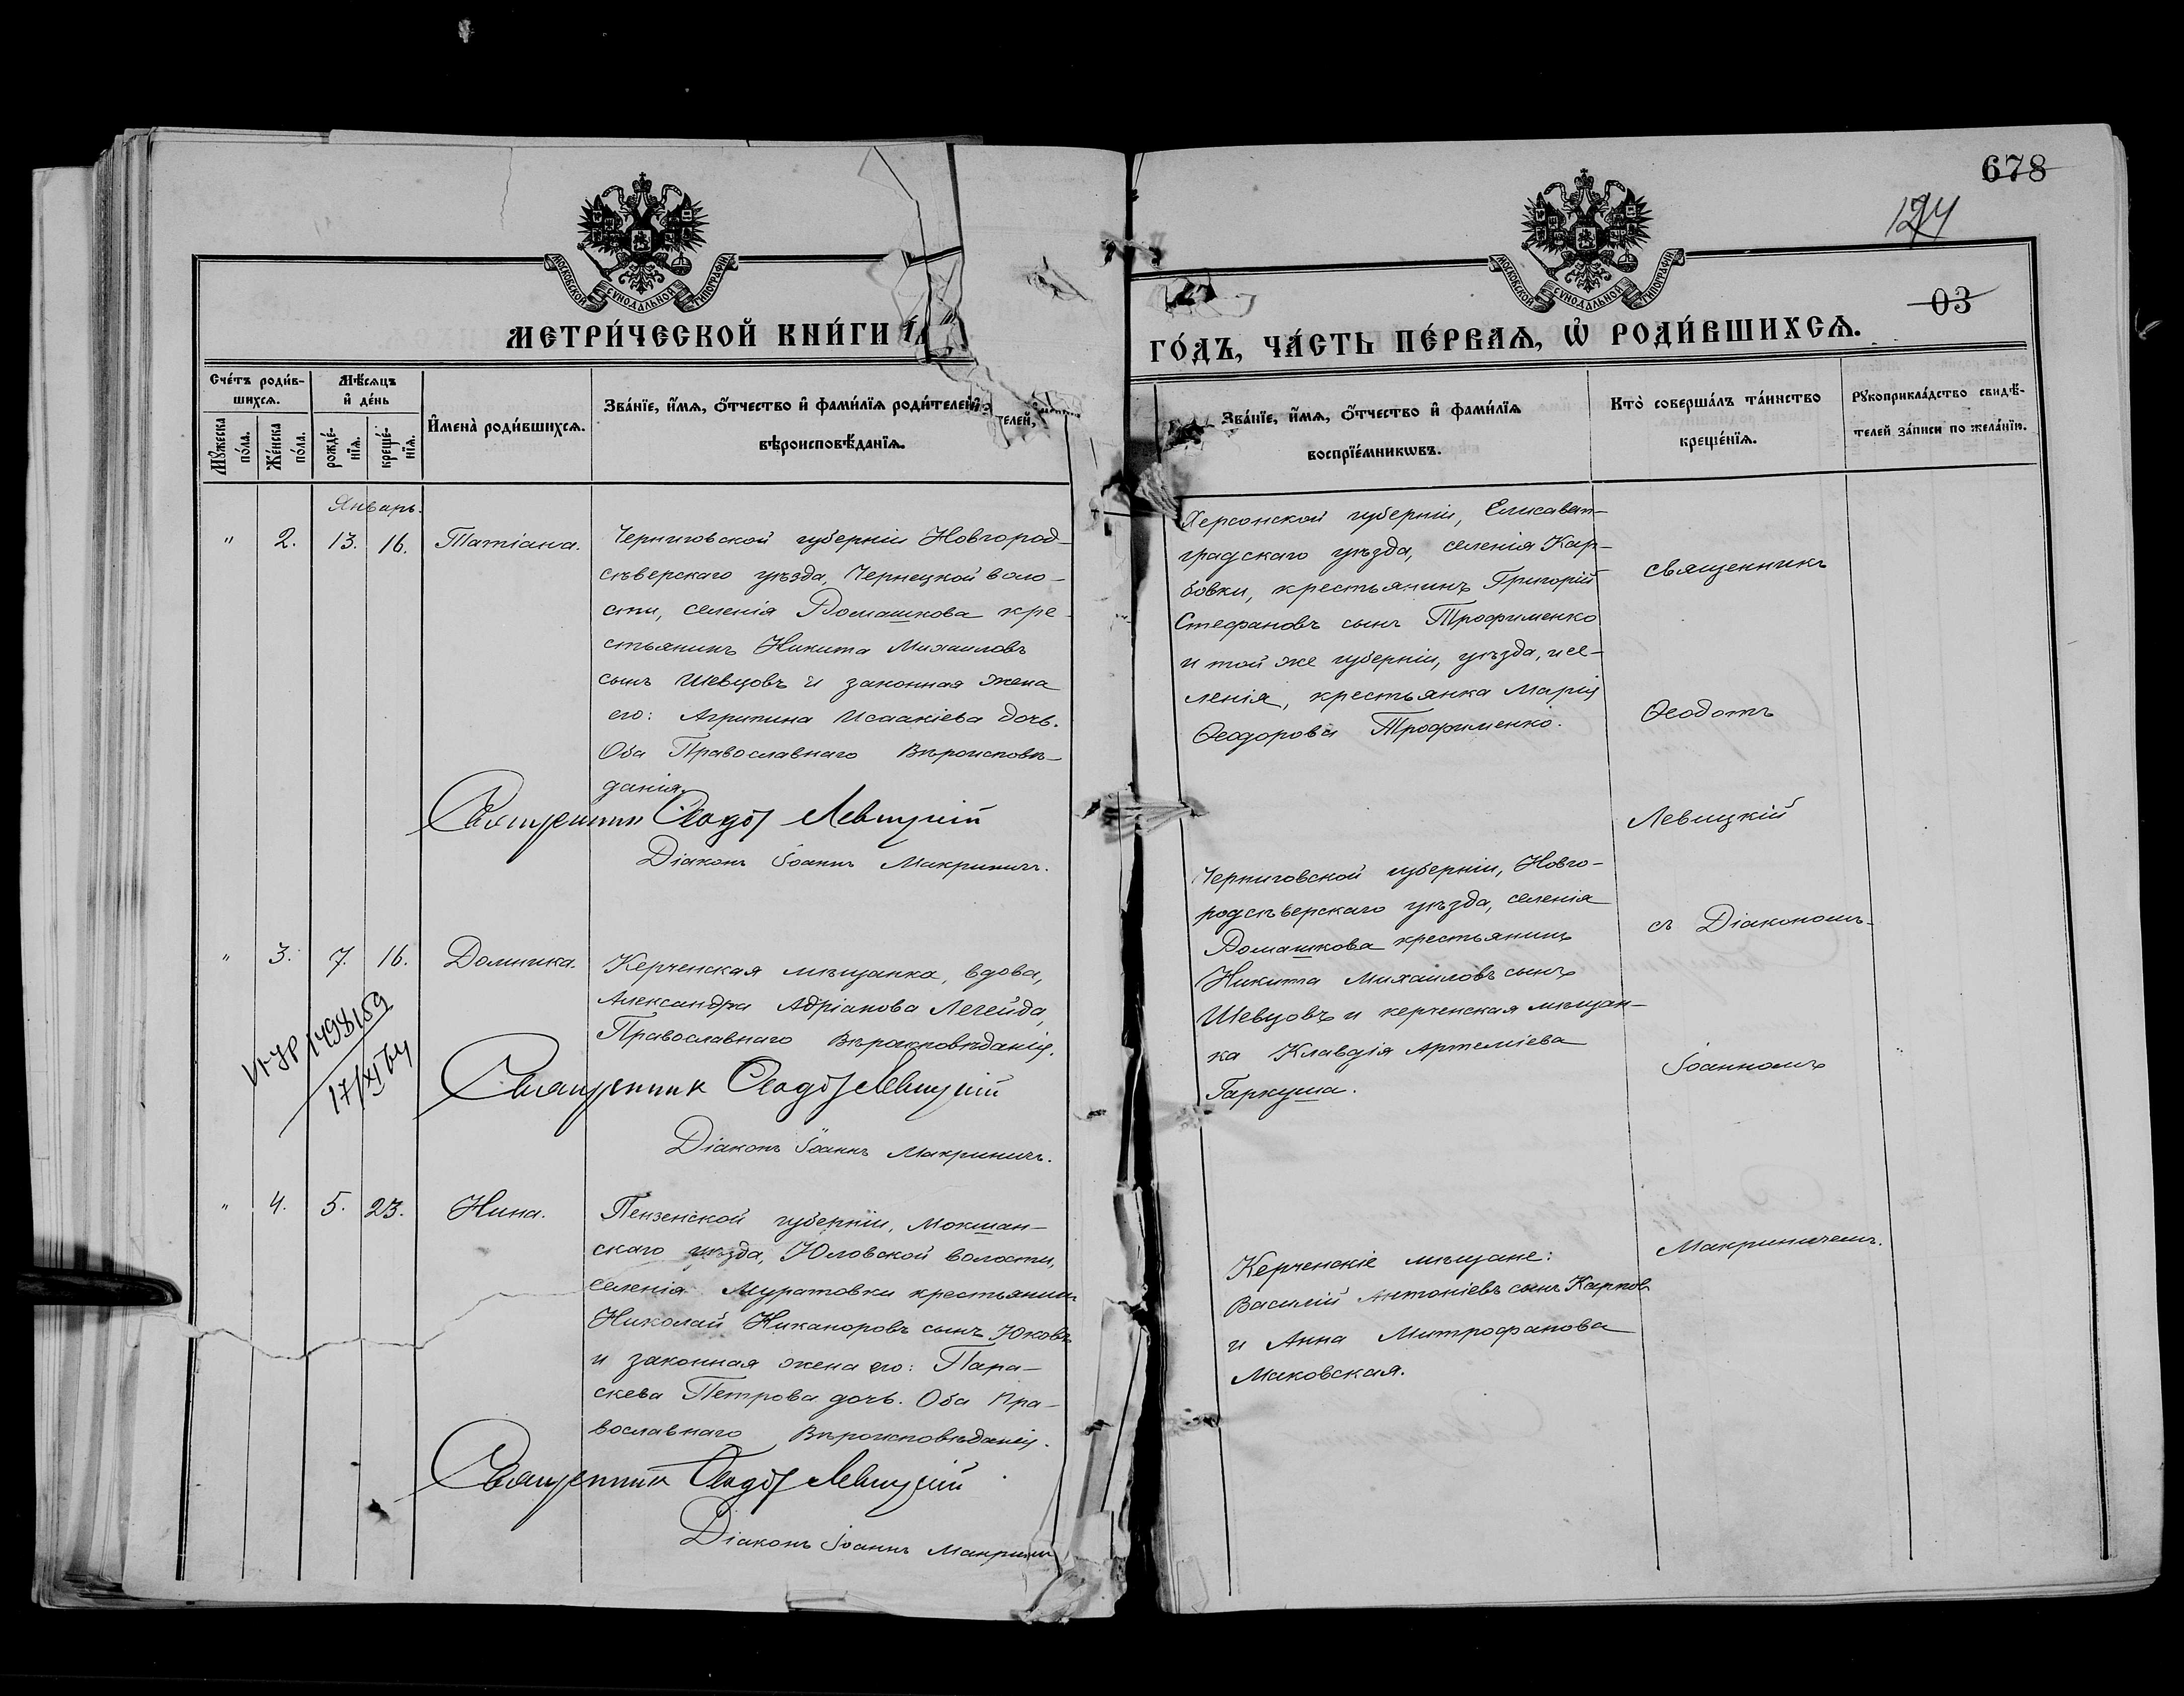 678
124
03
МОСКОВСКОЙ СѴНОДАЛЬНОЙ ТИПОГРАФІИ
МОСКОВСКОЙ СѴНОДАЛЬНОЙ ТИПОГРАФІИ
МЕТРИ́ЧЕСКОЙ КНИ́ГИ
ГО́ДЪ, ЧА́СТЬ ПЕ́РВАѦ, Ѽ РОДИ́ВШИХСѦ.
Сче́тъ роди́в-
шихсѧ.
Мѣ́сѧцъ
и҆ де́нь
Мꙋ́жеска
по́ла.
Же́нска
по́ла.
рожде́-
нїѧ.
креще́-
нїѧ.
И҆мена̀ роди́вшихсѧ.
Зва́нїе, и҆́мѧ, ѻ҆́тчество и҆ фами́лїѧ роди́телей,
вѣроисповѣ́данїѧ.
Зва́нїе, и҆́мѧ, ѻ҆́тчество и҆ фами́лїѧ
воспрїе́мникѡвъ.
Кто̀ соверша́лъ та́инство
креще́нїѧ.
Рꙋкоприкла́дство свидѣ́-
телей за́писи по жела́нїю.
Январь.
" 2. 13. 16. Татіана.
Черниговской губерніи Новгород-
сѣверскаго уѣзда, Чернецкой воло-
сти, селенія Ромашкова кре-
стьянинъ Никита Михаиловъ
сынъ Шевцовъ и законная жена
его: Агрипина Исаакіева дочь.
Оба Православнаго Вѣроисповѣ-
данія.
Священник Феодот Левицкій
Діаконъ Іоаннъ Макринич.
Херсонской губерніи, Елисавет-
градскаго уѣзда, селенія Кар-
бовки, крестьянинъ Григорій
Стефановъ сынъ Трофименко
и той же губерніи, уѣзда, и се-
ленія, крестьянка Марія
Ѳеодорова Трофименко.
священникъ
Ѳеодотъ
Левицкій
съ Діакономъ
Іоанномъ
Макриничемъ.
" 3. 7. 16. Домника.
Керченская мѣщанка, вдова,
Александра Адріанова Легейда,
Православнаго Вѣроисповѣданія.
1498159
17/XI 64
Священник Феодот Левицкій
Діаконъ Іоаннъ Макриничъ.
Черниговской губерніи, Новго-
родсѣверскаго уѣзда, селенія
Ромашкова крестьянинъ
Никита Михаиловъ сынъ
Шевцовъ и керченская мѣщан-
ка Клавдія Артеміева
Гаркуша.
" 4. 5. 23. Нина.
Пензенской губерніи, Мокшан-
скаго уѣзда, Юловской волости,
селенія Муратовки крестьянинъ
Николай Никаноровъ сынъ Юковъ
и законная жена его: Пара-
скева Петрова дочь. Оба Пра-
вославнаго Вѣроисповѣданія.
Священник Феодот Левицкій
Діаконъ Іоаннъ Макринич
Керченскіе мѣщане:
Василій Антоніевъ сынъ Карпов
и Анна Митрофанова
Маковская.